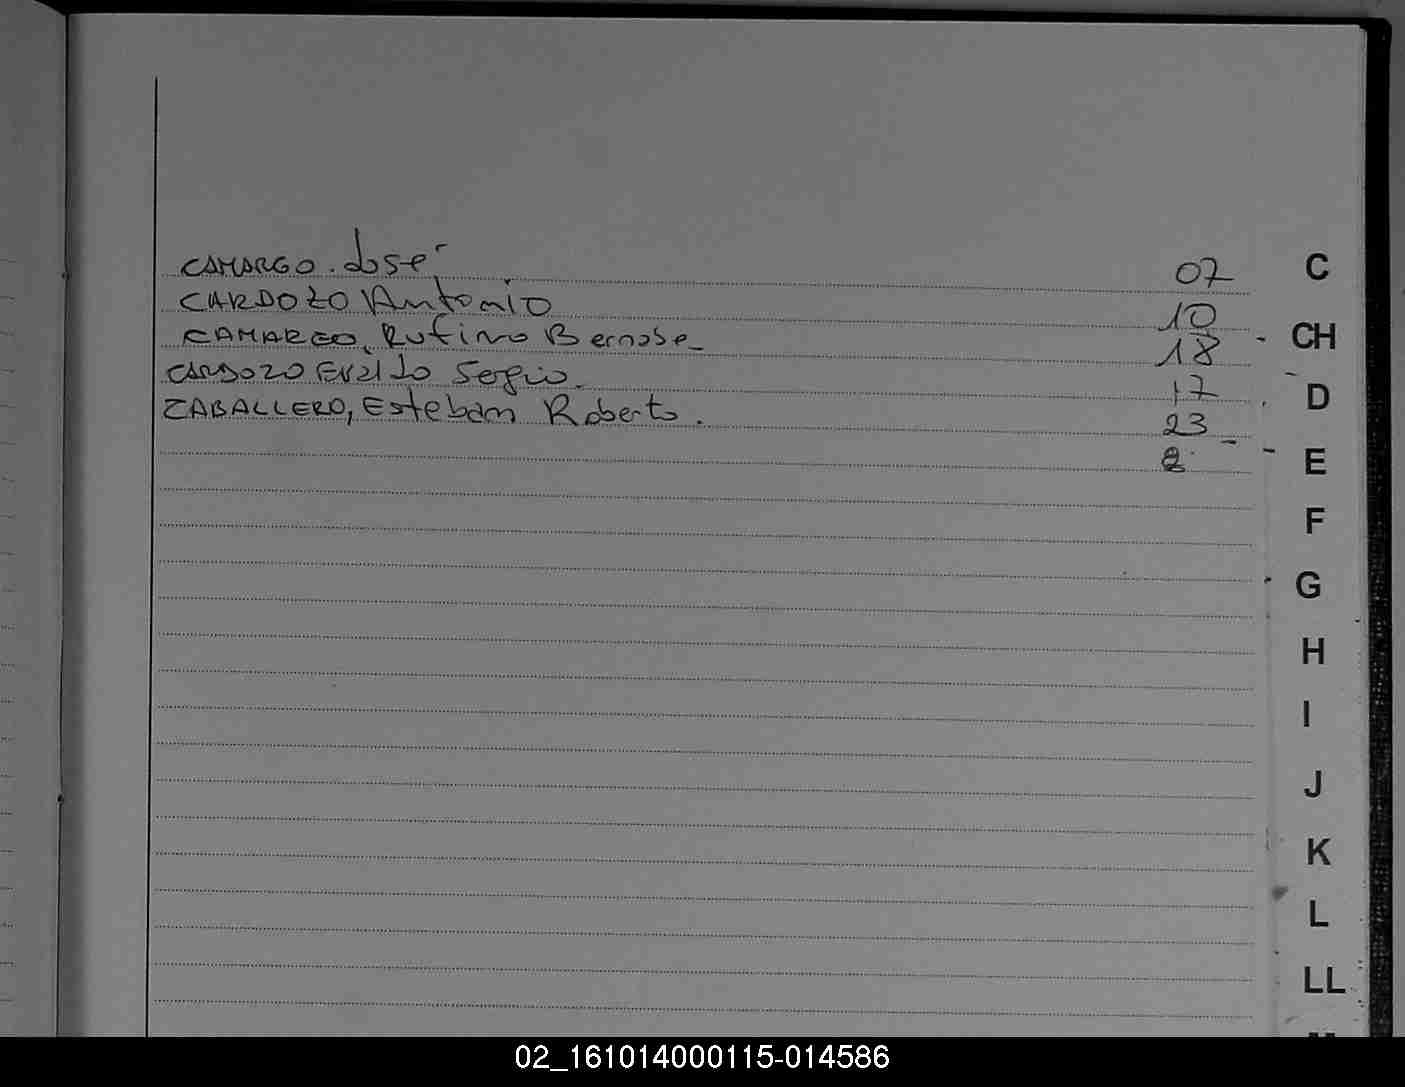 CAMARGO. José 07 C
CARDOZO Antonio 10
CAMARGO, Rufino Bernabe 18 CH
CARDOZO Evaldo Sergio. 17 D
CABALLERO, Esteban Roberto. 23
E
F
G
H
I
J
K
L
LL
02_161014000115-014586